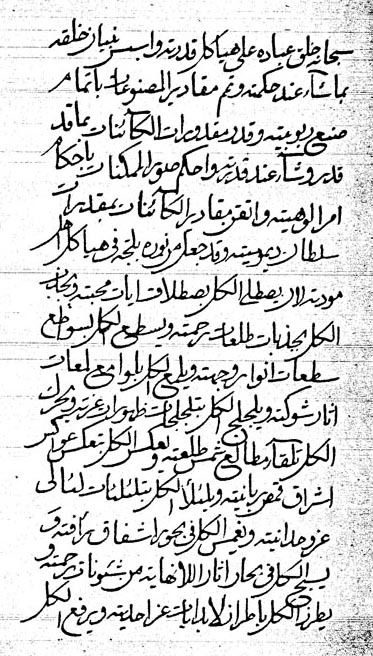 سبحانه خلق عباده على هياكل قدرته واسس بنيان خلقه
بما شاء عند حكمته وتم مقادير المصنوعات باتمام
صنع ربوبيته وقدر مقدورات الكائنات بما قد
قدر وشاء عند قدرته واحكم صور الممكنات باحكام
امر الوهيته واتقن مقادير الكائنات بمقدرات
سلطان ديموميته وقد جعل من نوره بلجه في هياكل اهل
مودته لان يصطلع الكل بصطلات ايات محبته ويجذب
الكل بجذبات طلعات رحمته ويسطع الكل بسواطع
سطعات انوار وجهته ويلمع الكل بلوامع لمعات
اثار شوكته ويلجلج الكل بتلجلجات ظهورات عزته ويحرك
الكل تلقاء مطالع شمس طلعته ويعكس الكل بعكس عواكس
اشراق قمص ربانيته ويلئلأ الكل بتلئلئات لئالي
عز وحدانيته ويغمس الكل في بحور اشفاق رأفته و
يسبح الكل في بحار اثار اللانهاية من شئونات رحمته و
يطرز الكل باطراز لابدايات عز احديته ويرفع الكل